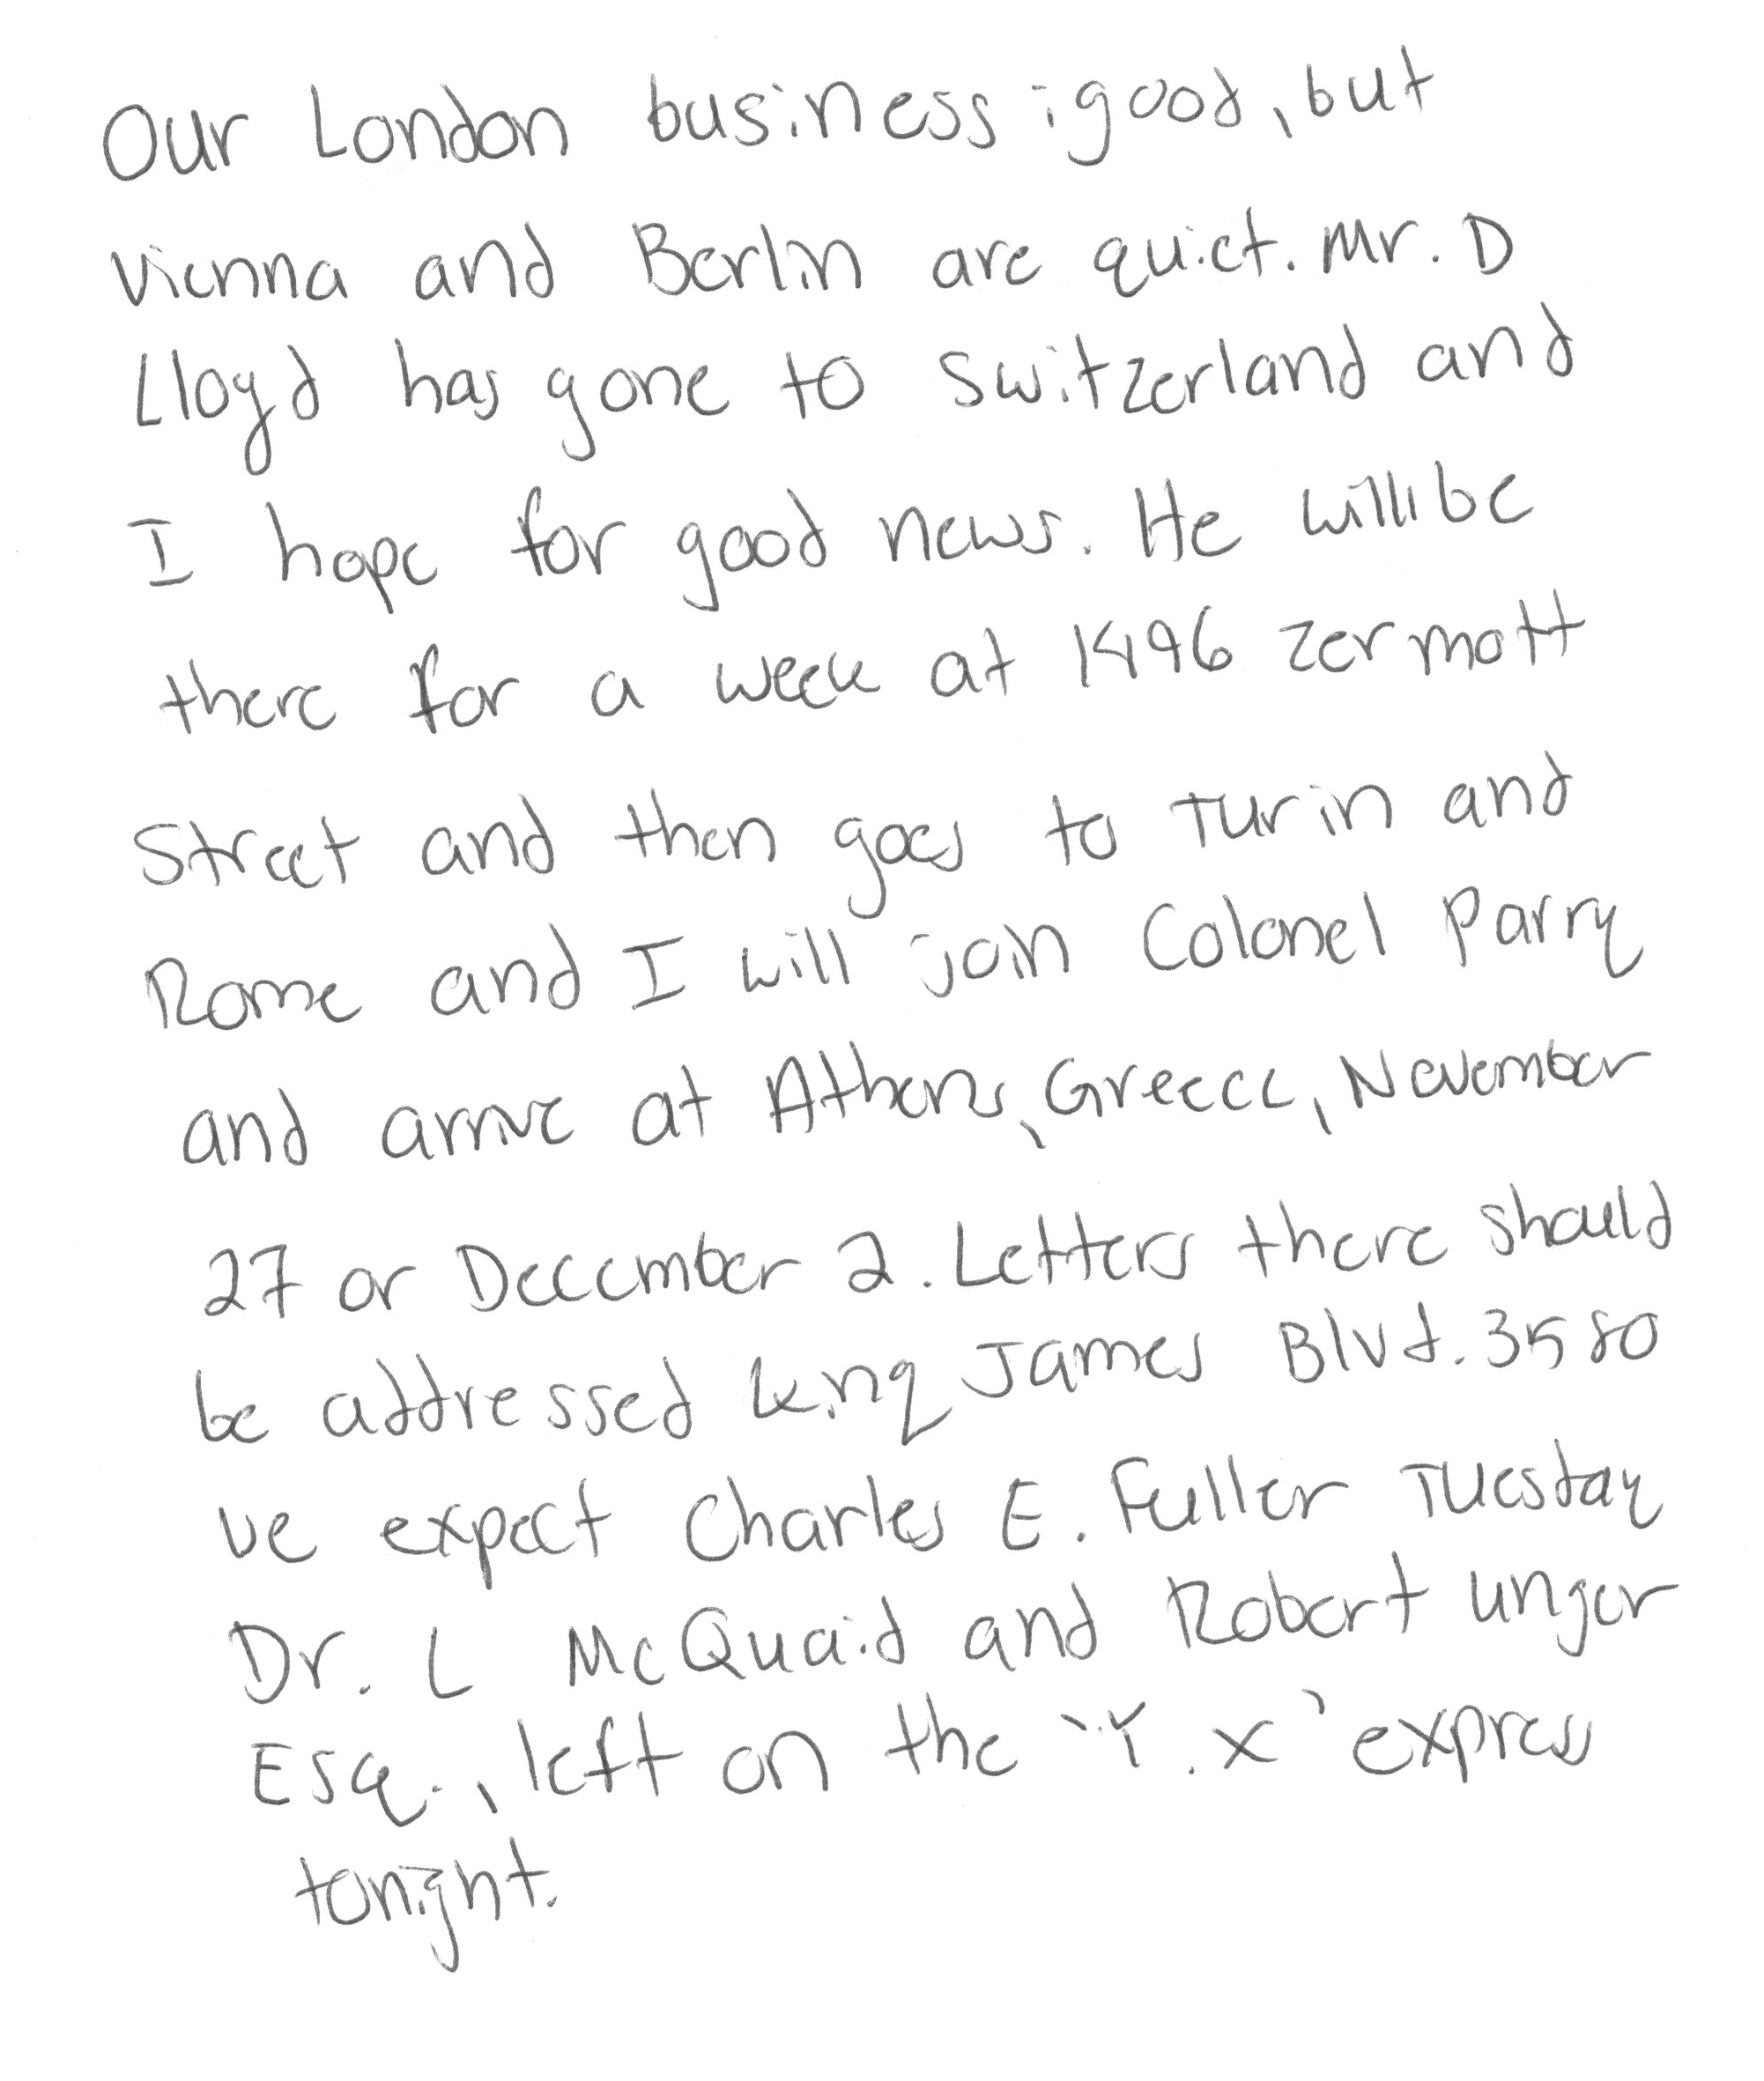 Our London business : good, but
Vienna and Berlin are quiet. Mr. D
Lloyd has gone to Switzerland and
I hope for good news. He will be
there for a week at 1496 Zermott
Street and then goes to Turin and
Rome and I will join Colonel Parry
and arrive at Athens, Greece, November
27 or December 2. Letters there should
be addressed King James Blvd. 3580
We expect Charles E. Fuller Tuesday
Dr. L McQuaid and Robert Unger
Esq., left on the "Y. X" express
tonight.